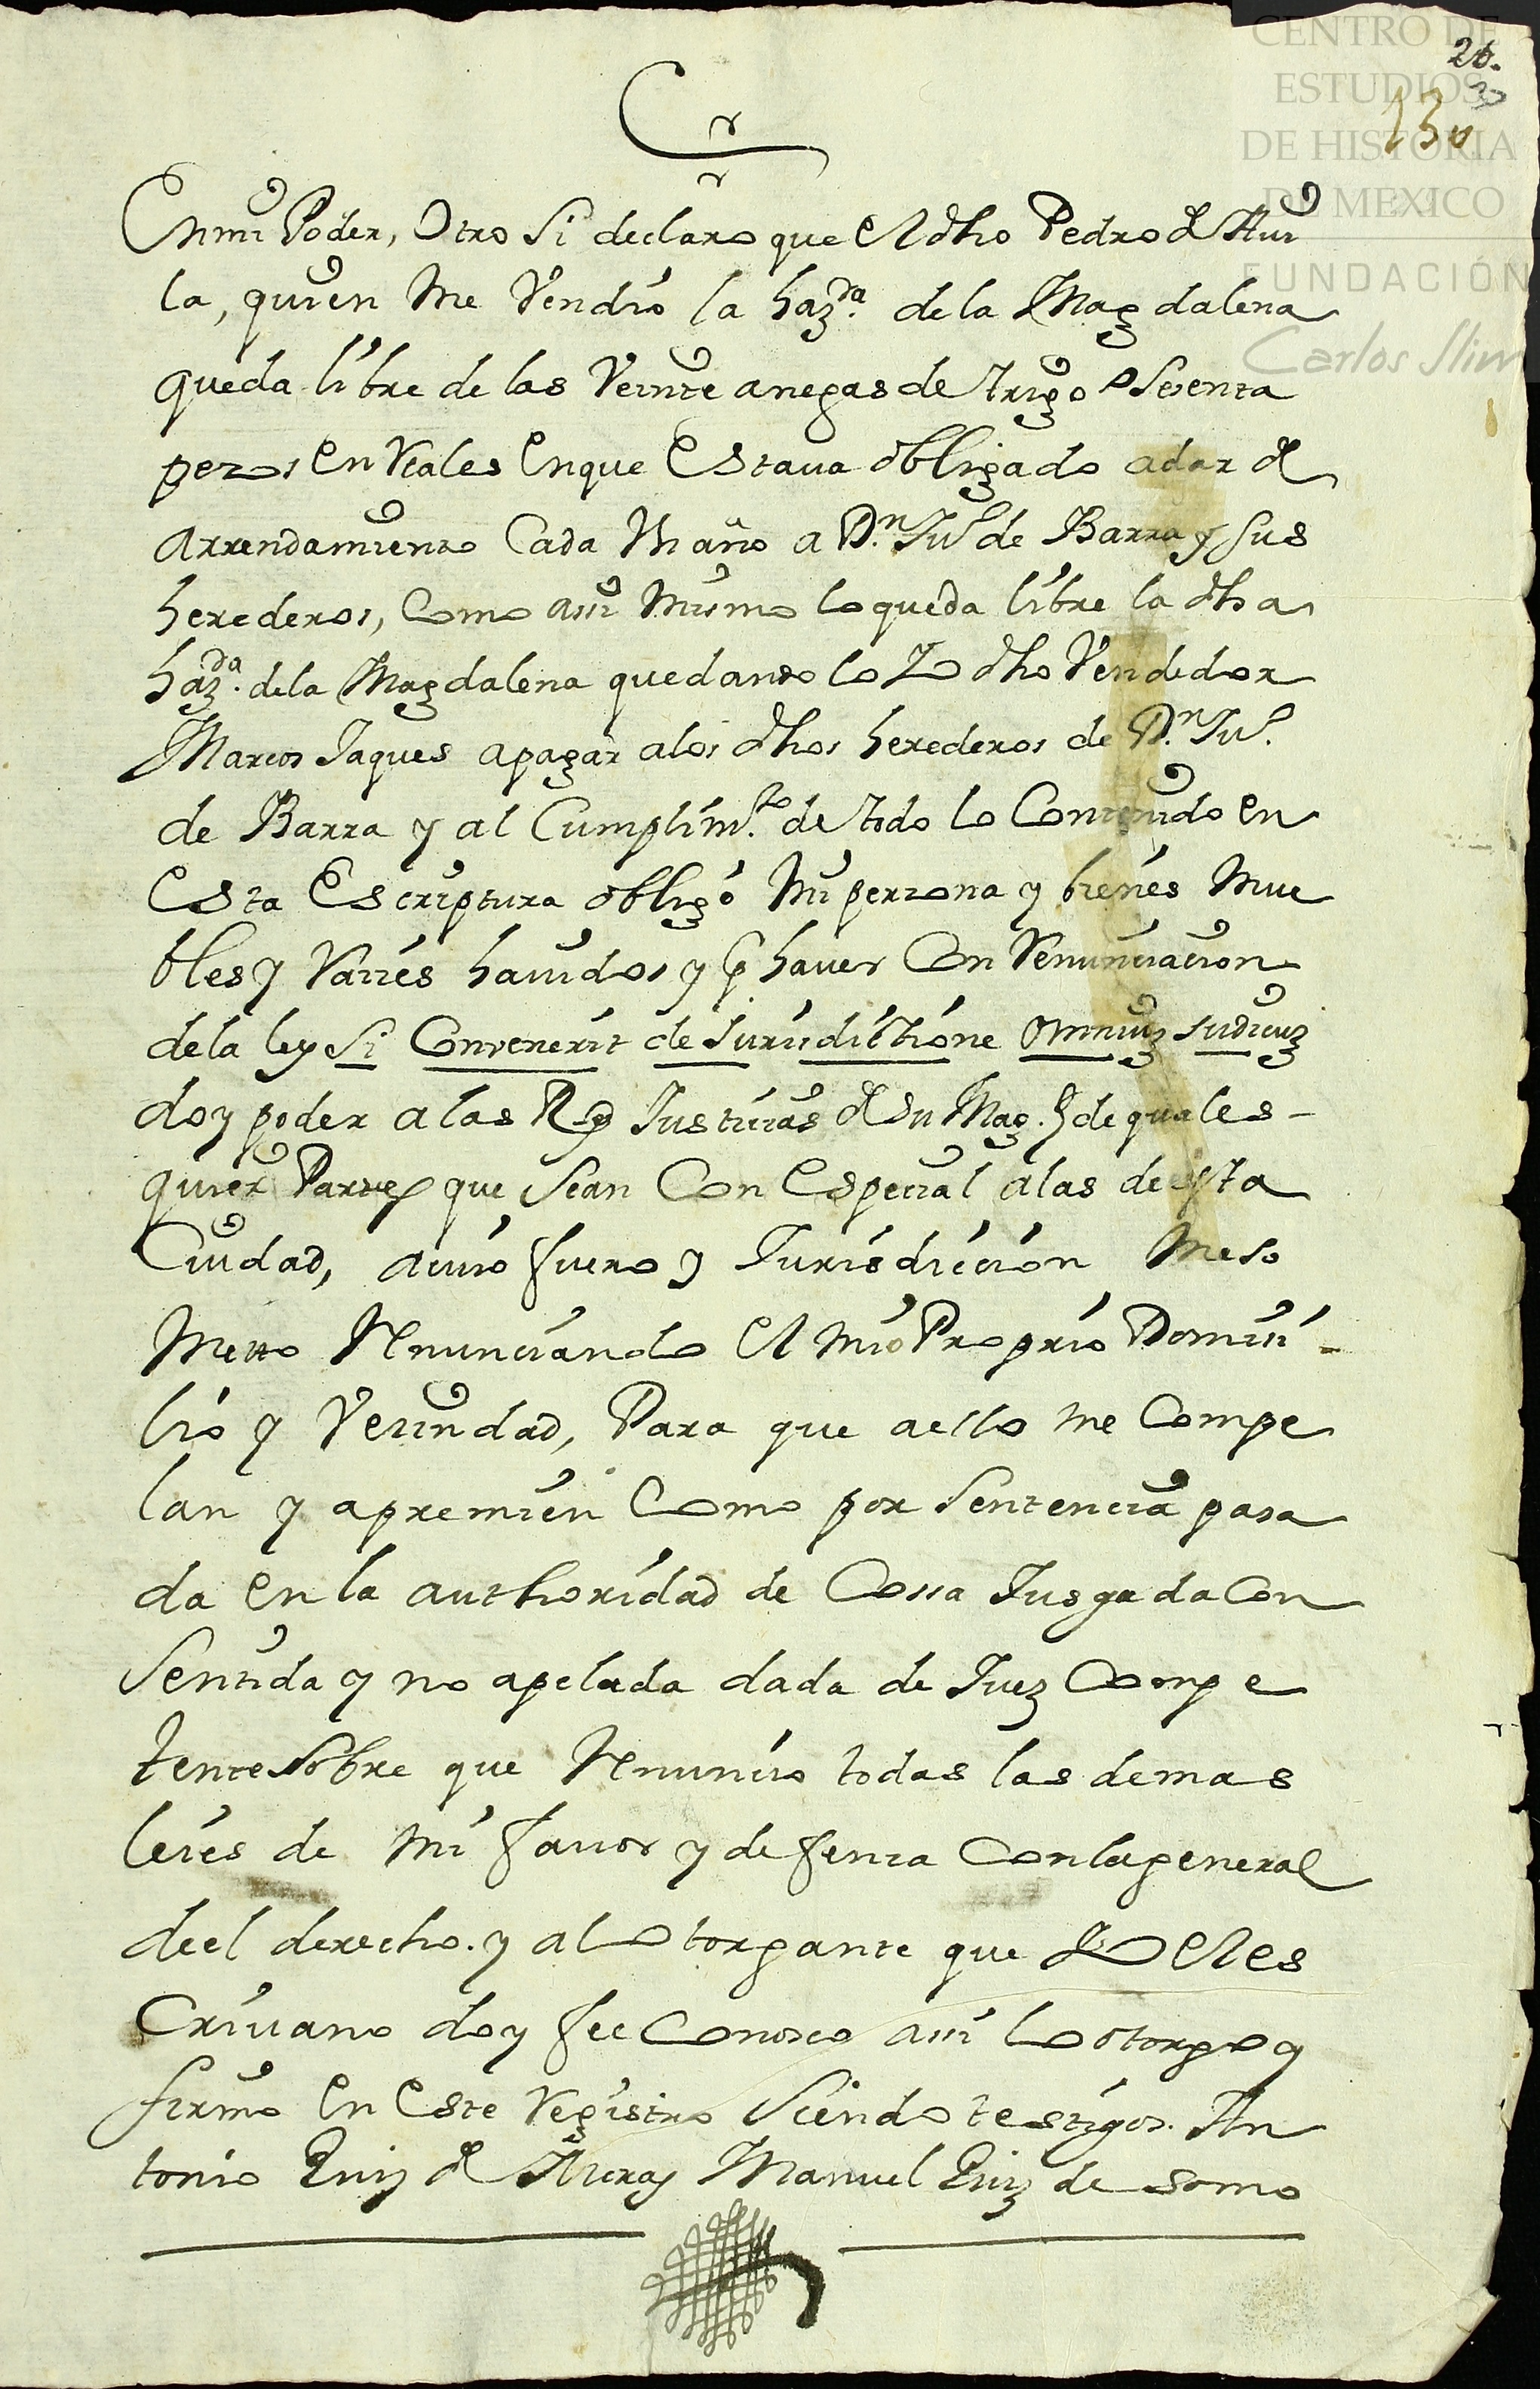 CENTRO DE
ESTUDIOS
DE HISTORIA
DE MEXICO
FUNDACIÓN
Carlos Slim
26.
130
En mi Poder, Otro Si declaro que el dho Pedro de Aui
la, quien Me Vendio la hazda. de la Magdalena
queda libre de las Veinte anegas de trigo o Secenta
pezos en Reales en que Estaua obligado a dar de
Arrendamiento Cada Vn año a Dn. Jul de Barra y sus
herederos, Como assi Mismo lo queda libre la dha
hazda. de la Magdalena quedando lo Yo dho Vendedor
Marcos Jaques a pagar a los dhos herederos de Dn. Jul.
de Barra y al Cumplimto. de todo lo Contenido en
Esta Escriptura obligó Mi perzona y bienés Mue
bles y Raizes hauidos y p haver Con Renunciacion
de la ley Si Convenerit de Jurisdictione Omniuz Judicuz
doy poder a las Rs Justicias de Su Mag. de quales-
quier Partes que Sean Con Especial a las de esta
Ciudad, a cuio fuero y Jurisdiccion Me So
Metto Renunciando el mio Proprio Domici-
lio y Vecindad, Para que a ello me Compe
lan y apremien Como por Sentencia pasa
da en la authoridad de Cossa Jusgada Con
Sentida y no apelada dada de Juez Compe
tente Sobre que Renuncio todas las demas
leies de Mi fauor y defensa Con la general
de el derecho. y al otorgante que Yo el es
Criuano doy fee Conosco assi lo otorgo y
firmo en Este Registro Siendo testigos. An
tonio Ruiz de Manuel Ruiz de somo